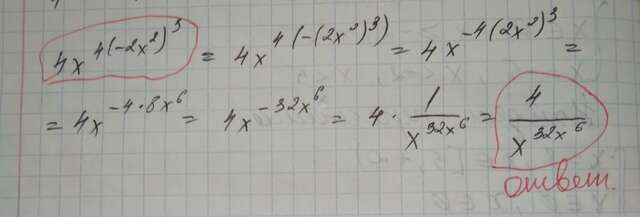 4x^{4(-2x²)³} = 4x^{4(-(2x²)³)} = 4x^{-4(2x²)³} =
= 4x^{-4·8x⁶} = 4x^{-32x⁶} = 4 · 1/x^{32x⁶} = 4/x^{32x⁶}
ответ.